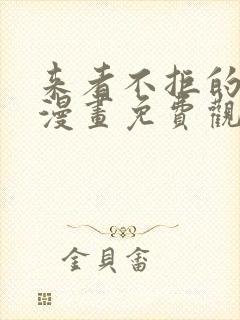 来者不拒的
漫畫免費觀
金貝畲